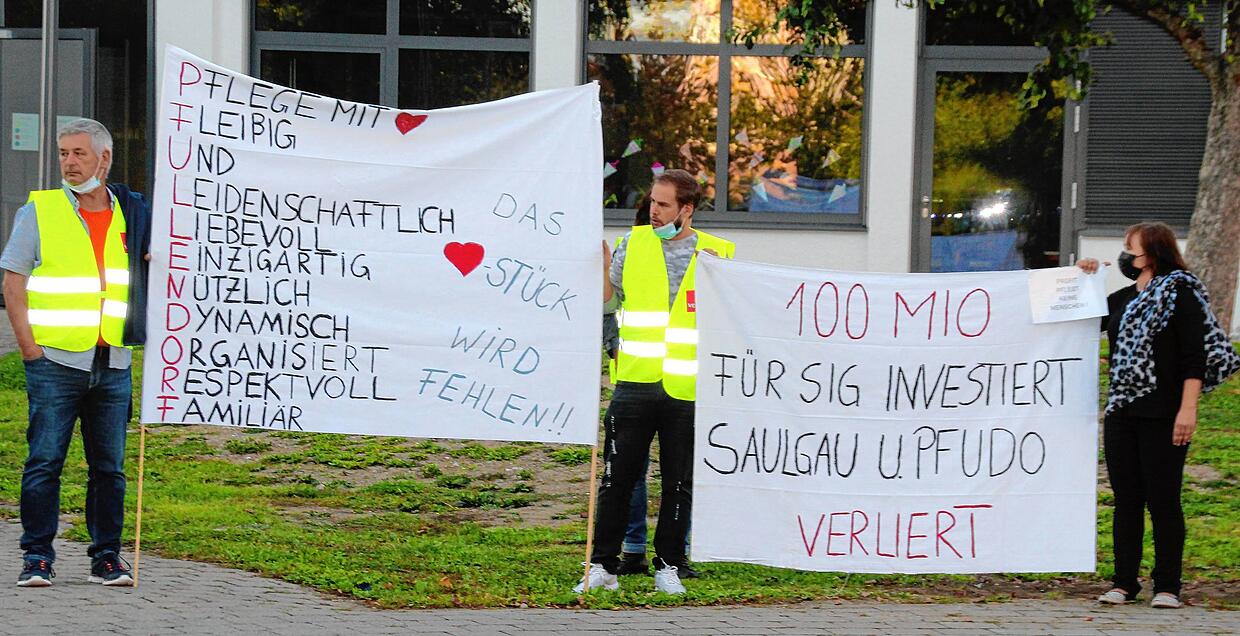 PFLEGE MIT
FLEIßIG
UND
LEIDENSCHAFTLICH
LIEBEVOLL
EINZIGARTIG
NÜTZLICH
DYNAMISCH
ORGANISIERT
RESPEKTVOLL
FAMILIÄR
DAS
-STÜCK
WIRD
FEHLEN!!
100 MIO
FÜR SIG INVESTIERT
SAULGAU U. PFUDO
VERLIERT
PROFIT
PFLEGT
KEINE
MENSCHEN!